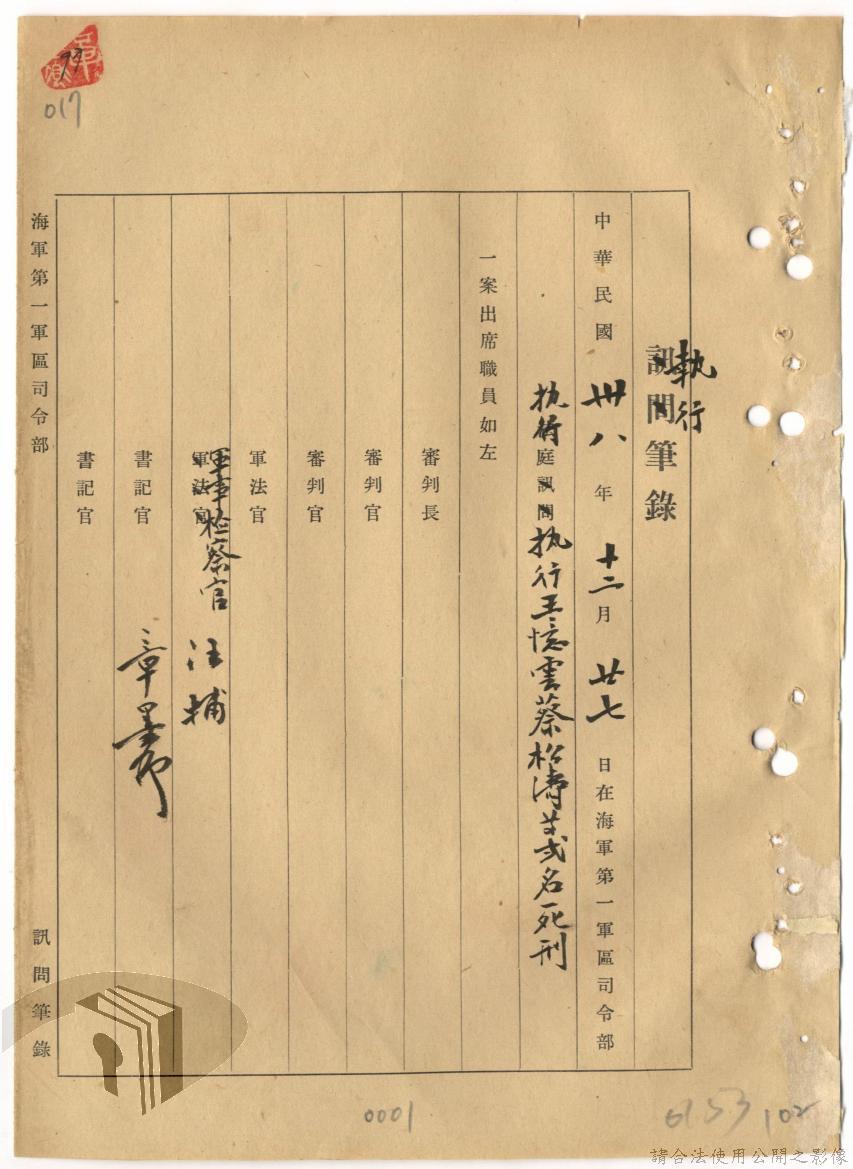 執行
訊問筆錄
中華民國卅八年十二月廿七日在海軍第一軍區司令部
执行庭訊問执行王憶雲蔡松濤等弍名死刑
一案出席職員如左
審判長
審判官
審判官
軍法官
軍法官
軍事检察官 汪補
書記官
書記官
海軍第一軍區司令部
訊問筆錄
017
0001
102
請合法使用公開之影像